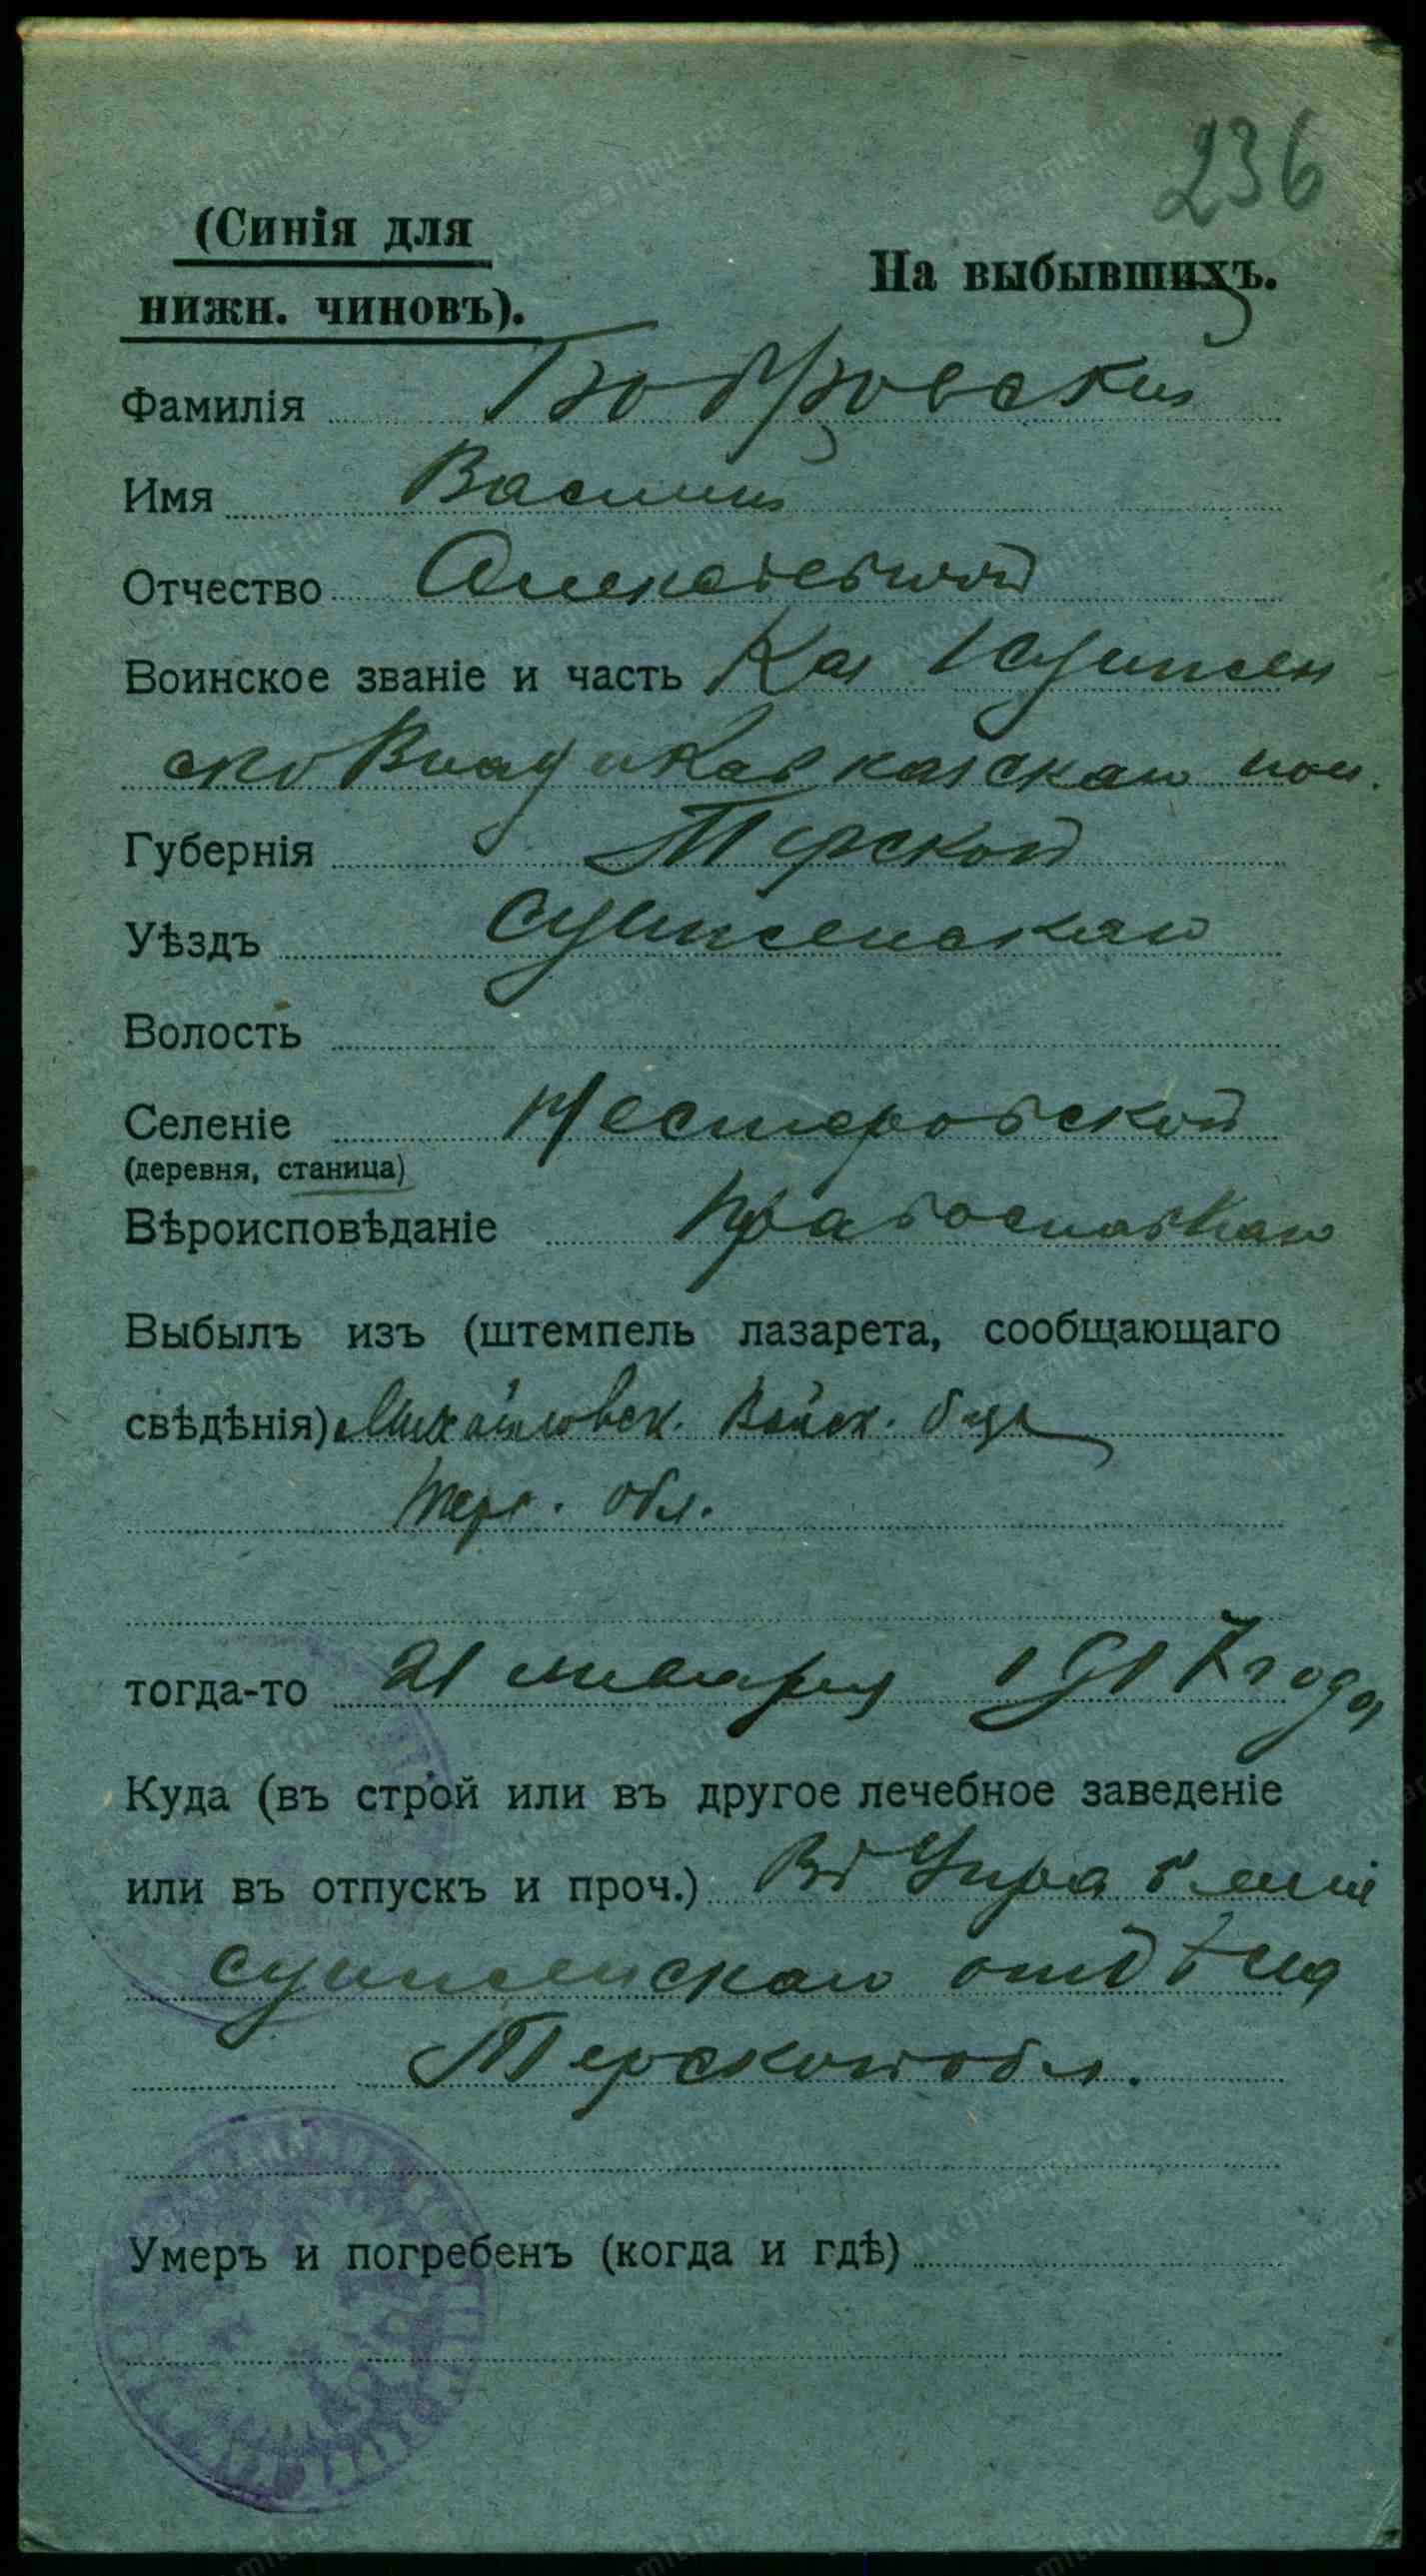 236
(Синія для
нижн. чиновъ).
На выбывшихъ.
Фамилія Бобровский
Имя Василий
Отчество Алексеевичъ
Воинское званіе и часть Каз 1 Сунжен
ско Владикавказскаго пол.
Губернія Терской
Уѣздъ Сунженскаго
Волость
Селеніе Нестеровской
(деревня, станица)
Вѣроисповѣданіе Православнаго
Выбылъ изъ (штемпель лазарета, сообщающаго
свѣдѣнія) Михайловск. Войск. больн
Терс. обл.
тогда-то 21 января 1917 года
Куда (въ строй или въ другое лечебное заведеніе
или въ отпускъ и проч.) Въ Управленіе
Сунженскаго отдѣла
Терской обл.
Умеръ и погребенъ (когда и гдѣ)